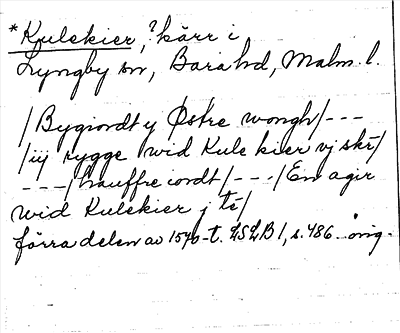 *Kulekier, ? kärr i
Lyngby sn, Bara hd, Malm. l.
/Bygiordt y Østre wongh/---
/iij rygge wid Kule kier vj skr/
---/hauffre iordt/---/Em agir
wid Kulekier j te/
förra delen av 1570-t. LSLB 1, s. 486. orig.